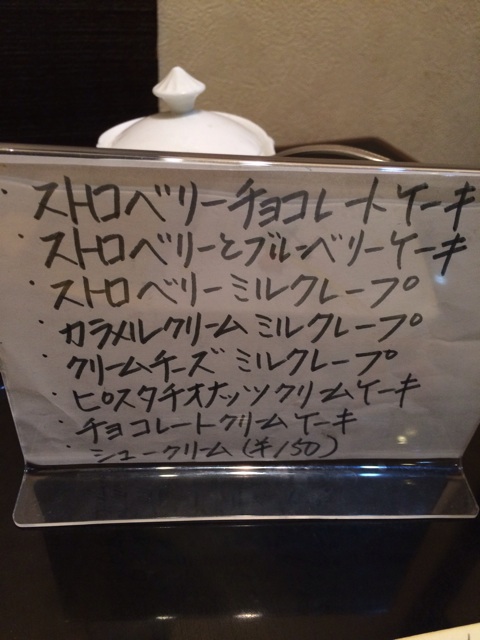 ・ストロベリーチョコレートケーキ
・ストロベリーとブルーベリーケーキ
・ストロベリーミルクレープ
・カラメルクリームミルクレープ
・クリームチーズミルクレープ
・ピスタチオナッツクリームケーキ
・チョコレートクリームケーキ
・シュークリーム(¥150)